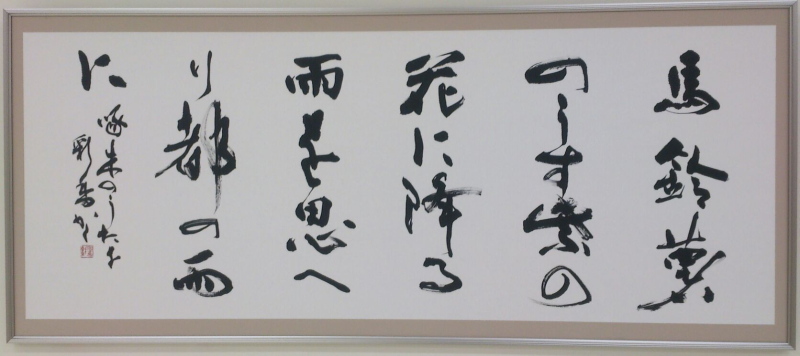 馬鈴薯
のうす紫の
花に降る
雨を思へ
り都の雨
に
啄木のうたを
彩香かく